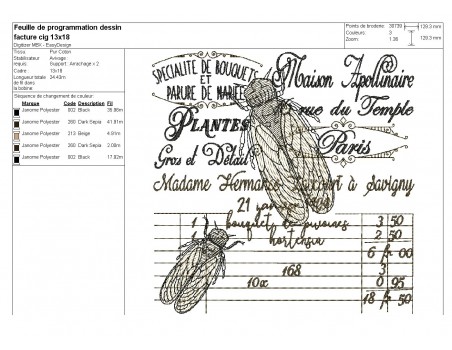 Feuille de programmation dessin
facture cig 13x18
Digitizer MBX - EasyDesign
Points de broderie: 39739
Couleurs: 3
Zoom: 1.36
129.3 mm
129.3 mm
Tissu: Pur Coton
Stabilisateur requis: Avivage
Support: Arrachage x 2
Cadre: 13x18
Longueur totale de fil dans la bobine: 34.43m
Séquence de changement de couleur:
Marque Code Description Fil
Janome Polyester 002 Black
Janome Polyester 260 Dark Sepia
Janome Polyester 213 Beige
Janome Polyester 260 Dark Sepia
Janome Polyester 002 Black
SPÉCIALITÉ DE BOUQUET
ET
PARURE DE MARIÉE
Maison Apollinaire
rue du Temple
PLANTES
Paris
Gros et Détail
Madame à Savigny
21
1 bouquet 3 50
1 hortensia 2 50
6 fr 00
168 3
10x 0 95
18 fr 50